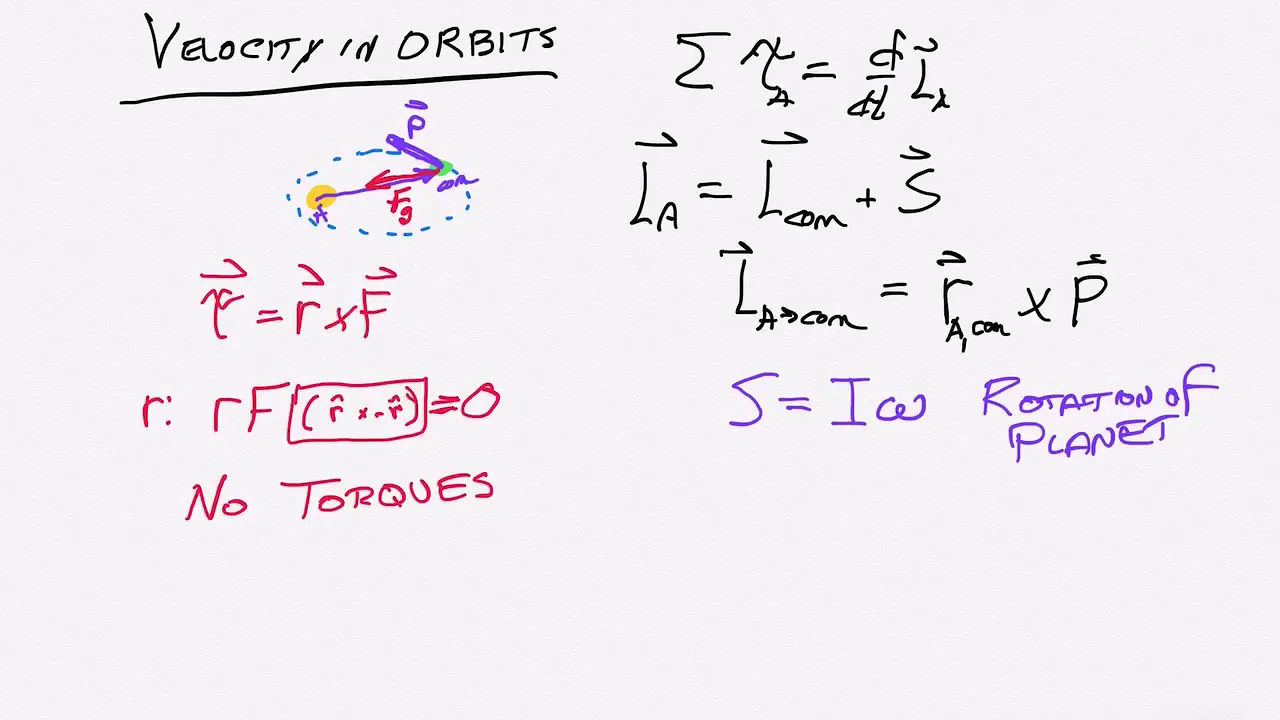 VELOCITY IN ORBITS
P⃗
com
A
F_g
τ⃗ = r⃗ × F⃗
r: rF (r̂ × -r̂) = 0
NO TORQUES
Σ τ_A = d/dt L⃗_A
L⃗_A = L⃗_com + S⃗
L⃗_A→com = r⃗_A,com × P⃗
S = Iω ROTATION OF
PLANET